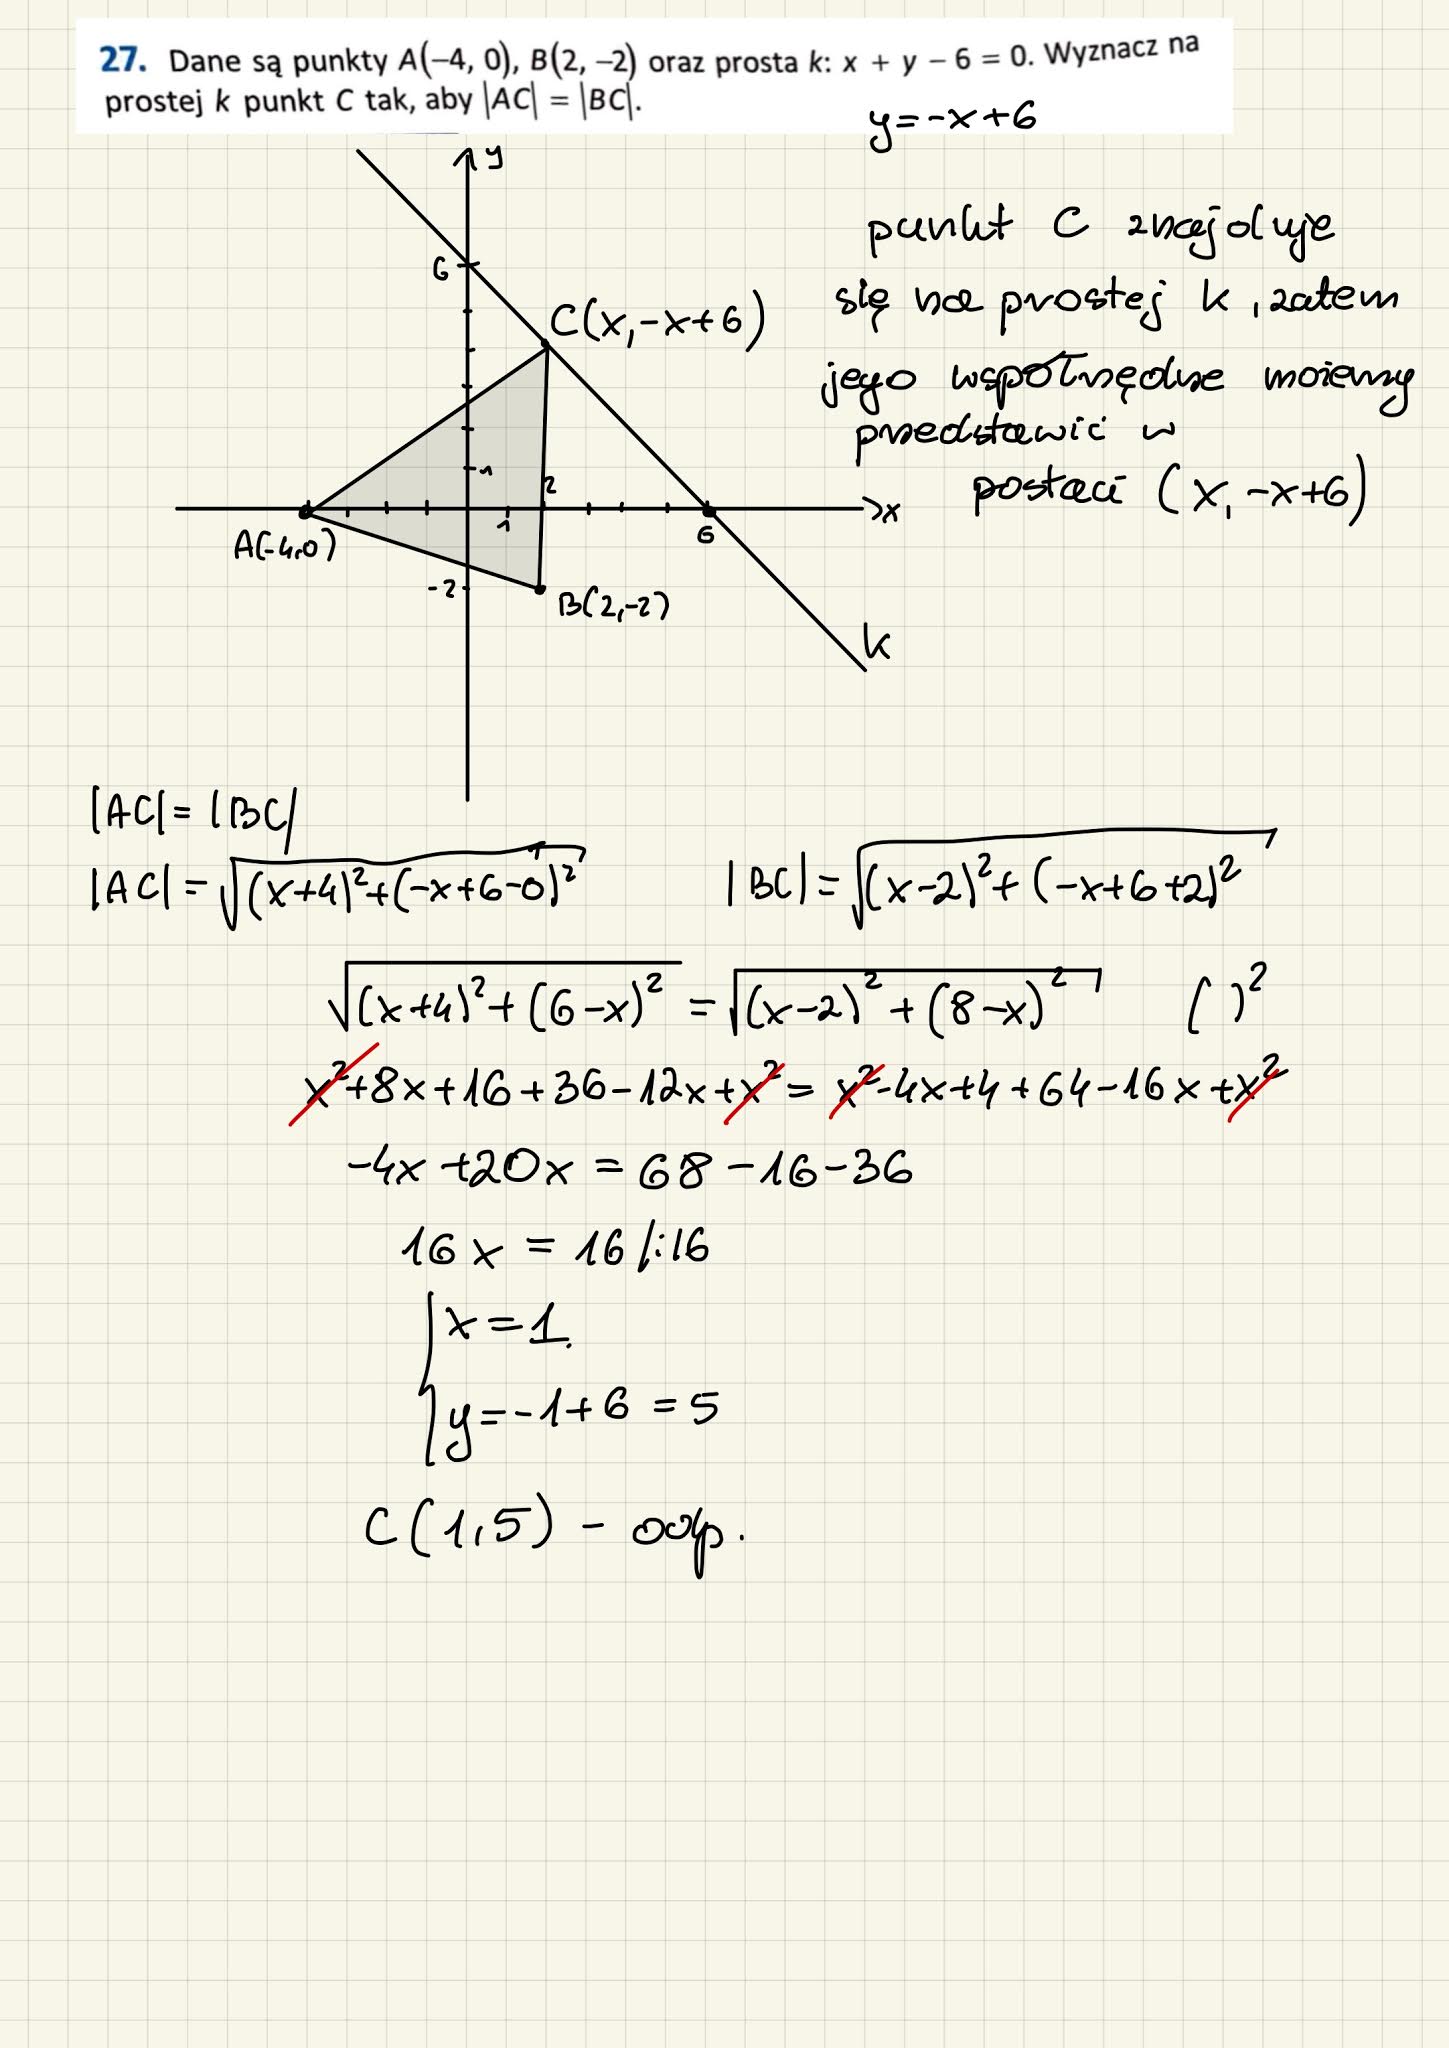 27. Dane są punkty A(−4, 0), B(2, −2) oraz prosta k: x + y − 6 = 0. Wyznacz na
prostej k punkt C tak, aby |AC| = |BC|.
y=-x+6
y
6
C(x,-x+6)
1
2
1
6
x
A(-4,0)
-2
B(2,-2)
k
punkt C znajduje
się na prostej k, zatem
jego współrzędne możemy
przedstawić w
postaci (x,-x+6)
|AC|=|BC|
|AC|=√(x+4)²+(-x+6-0)² |BC|=√(x-2)²+(-x+6+2)²
√(x+4)²+(6-x)² = √(x-2)²+(8-x)² ( )²
x²+8x+16+36-12x+x² = x²-4x+4+64-16x+x²
-4x+20x = 68-16-36
16x = 16 /:16
x=1
y=-1+6=5
C(1,5) - odp.